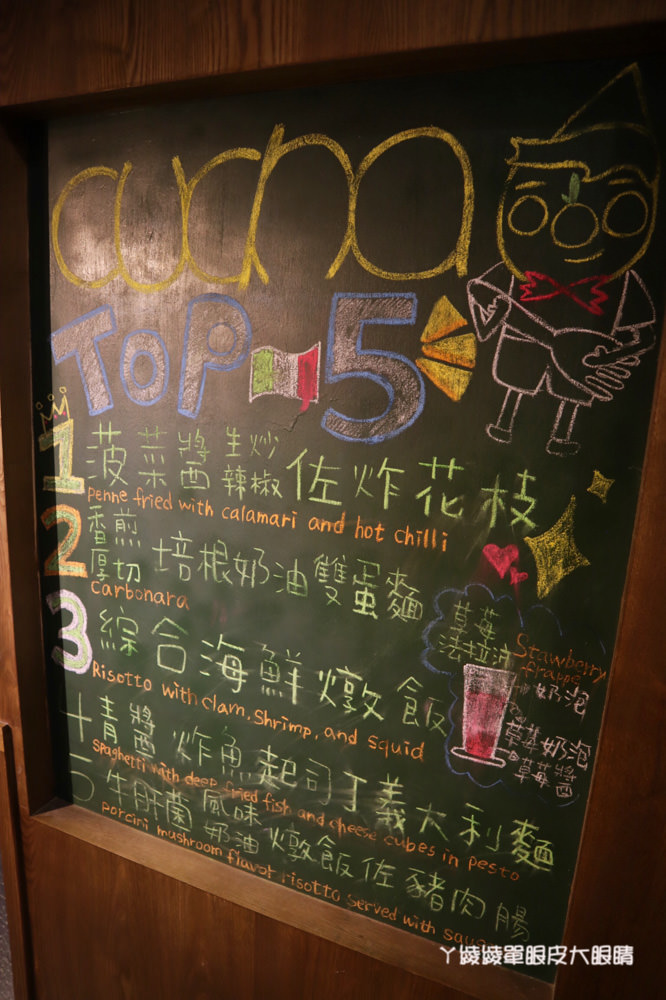 cucina
TOP 5
1 菠菜醬生炒辣椒佐炸花枝
penne fried with calamari and hot chilli
2 香煎厚切培根奶油雙蛋麵
Carbonara
3 綜合海鮮燉飯
Risotto with clam, shrimp, and squid
青醬炸魚起司丁義大利麵
spaghetti with deep fried fish and cheese cubes in pesto
5 牛肝菌風味奶油燉飯佐豬肉腸
porcini mushroom flavor risotto served with
草莓
法拉沛
Stawberry
frappe
奶泡
草莓奶泡
草莓醬
ㄚ綾綾單眼皮大眼睛